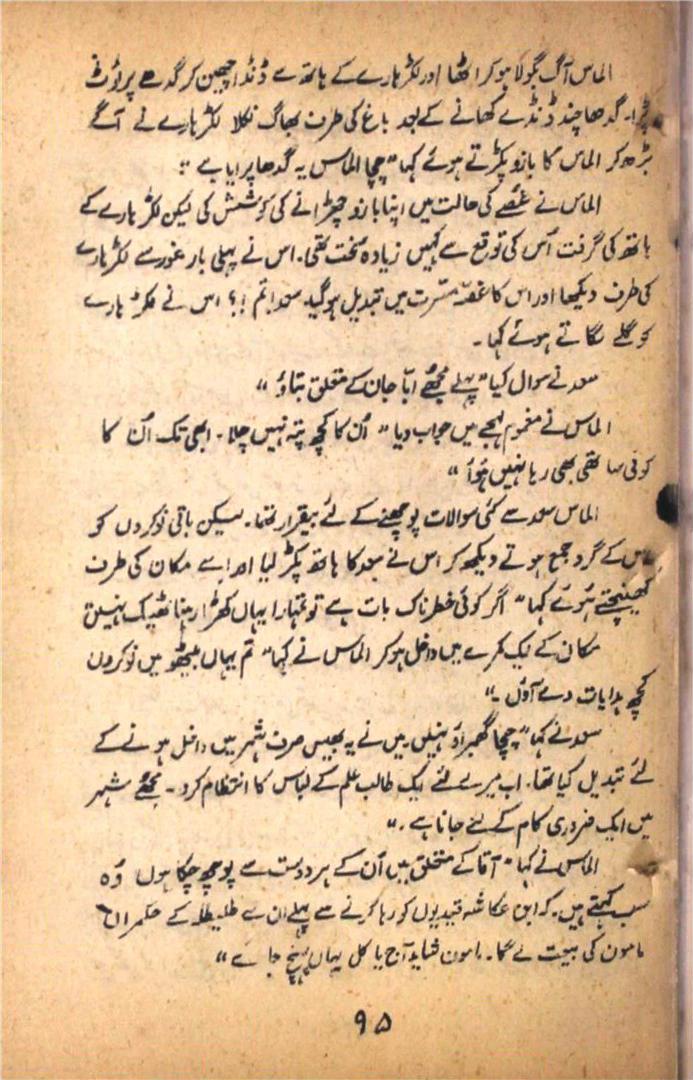 الماس آگ بگولا ہو کر اٹھا اور لکڑ ہارے کے ہاتھ سے ڈنڈا چھین کر گدھے پر ٹوٹ
پڑا۔ گدھا چند ڈنڈے کھانے کے بعد باغ کی طرف بھاگ نکلا لکڑ ہارے نے آگے
بڑھ کر الماس کا بازو پکڑتے ہوئے کہا ”چچا الماس یہ گدھا پرایا ہے“
الماس نے غصّے کی حالت میں اپنا بازو چھڑانے کی کوشش کی لیکن لکڑ ہارے کے
ہاتھ کی گرفت اُس کی توقع سے کہیں زیادہ سخت تھی۔ اس نے پہلی بار غور سے لکڑ ہارے
کی طرف دیکھا اور اس کا غصّہ مسرّت میں تبدیل ہو گیا۔ سعد! تم !؟ اس نے لکڑ ہارے
کو گلے لگاتے ہوئے کہا۔
سعد نے سوال کیا ”پہلے مجھے ابّا جان کے متعلق بتاؤ“
الماس نے مغموم لہجے میں جواب دیا ”اُن کا کچھ پتہ نہیں چلا۔ ابھی تک اُن کا
کوئی ساتھی بھی رہا نہیں ہُوا“
الماس سعد سے کئی سوالات پوچھنے کے لئے بیقرار تھا۔ لیکن باقی نوکروں کو
اس کے گرد جمع ہوتے دیکھ کر اس نے سعد کا ہاتھ پکڑ لیا اور اسے مکان کی طرف
کھینچتے ہُوئے کہا ”اگر کوئی خطرناک بات ہے تو تمہارا یہاں کھڑا رہنا ٹھیک نہیں“
مکان کے ایک کمرے میں داخل ہو کر الماس نے کہا ”تم یہاں بیٹھو میں نوکروں
کچھ ہدایات دے آؤں۔“
سعد نے کہا ”چچا گھبراؤ نہیں میں نے یہ بھیس صرف شہر میں داخل ہونے کے
لئے تبدیل کیا تھا۔ اب میرے لئے ایک طالب علم کے لباس کا انتظام کرو۔ مجھے شہر
میں ایک ضروری کام کے لئے جانا ہے۔“
الماس نے کہا ”آقا کے متعلق میں اُن کے ہر دوست سے پوچھ چکا ہوں وُہ
سب کہتے ہیں۔ کہ ابن عکاشہ قیدیوں کو رہا کرنے سے پہلے ان سے طلیطلہ کے حکمران
مامون کی بیعت لے گا۔ مامون شاید آج یا کل یہاں پہنچ جائے“
۹۵